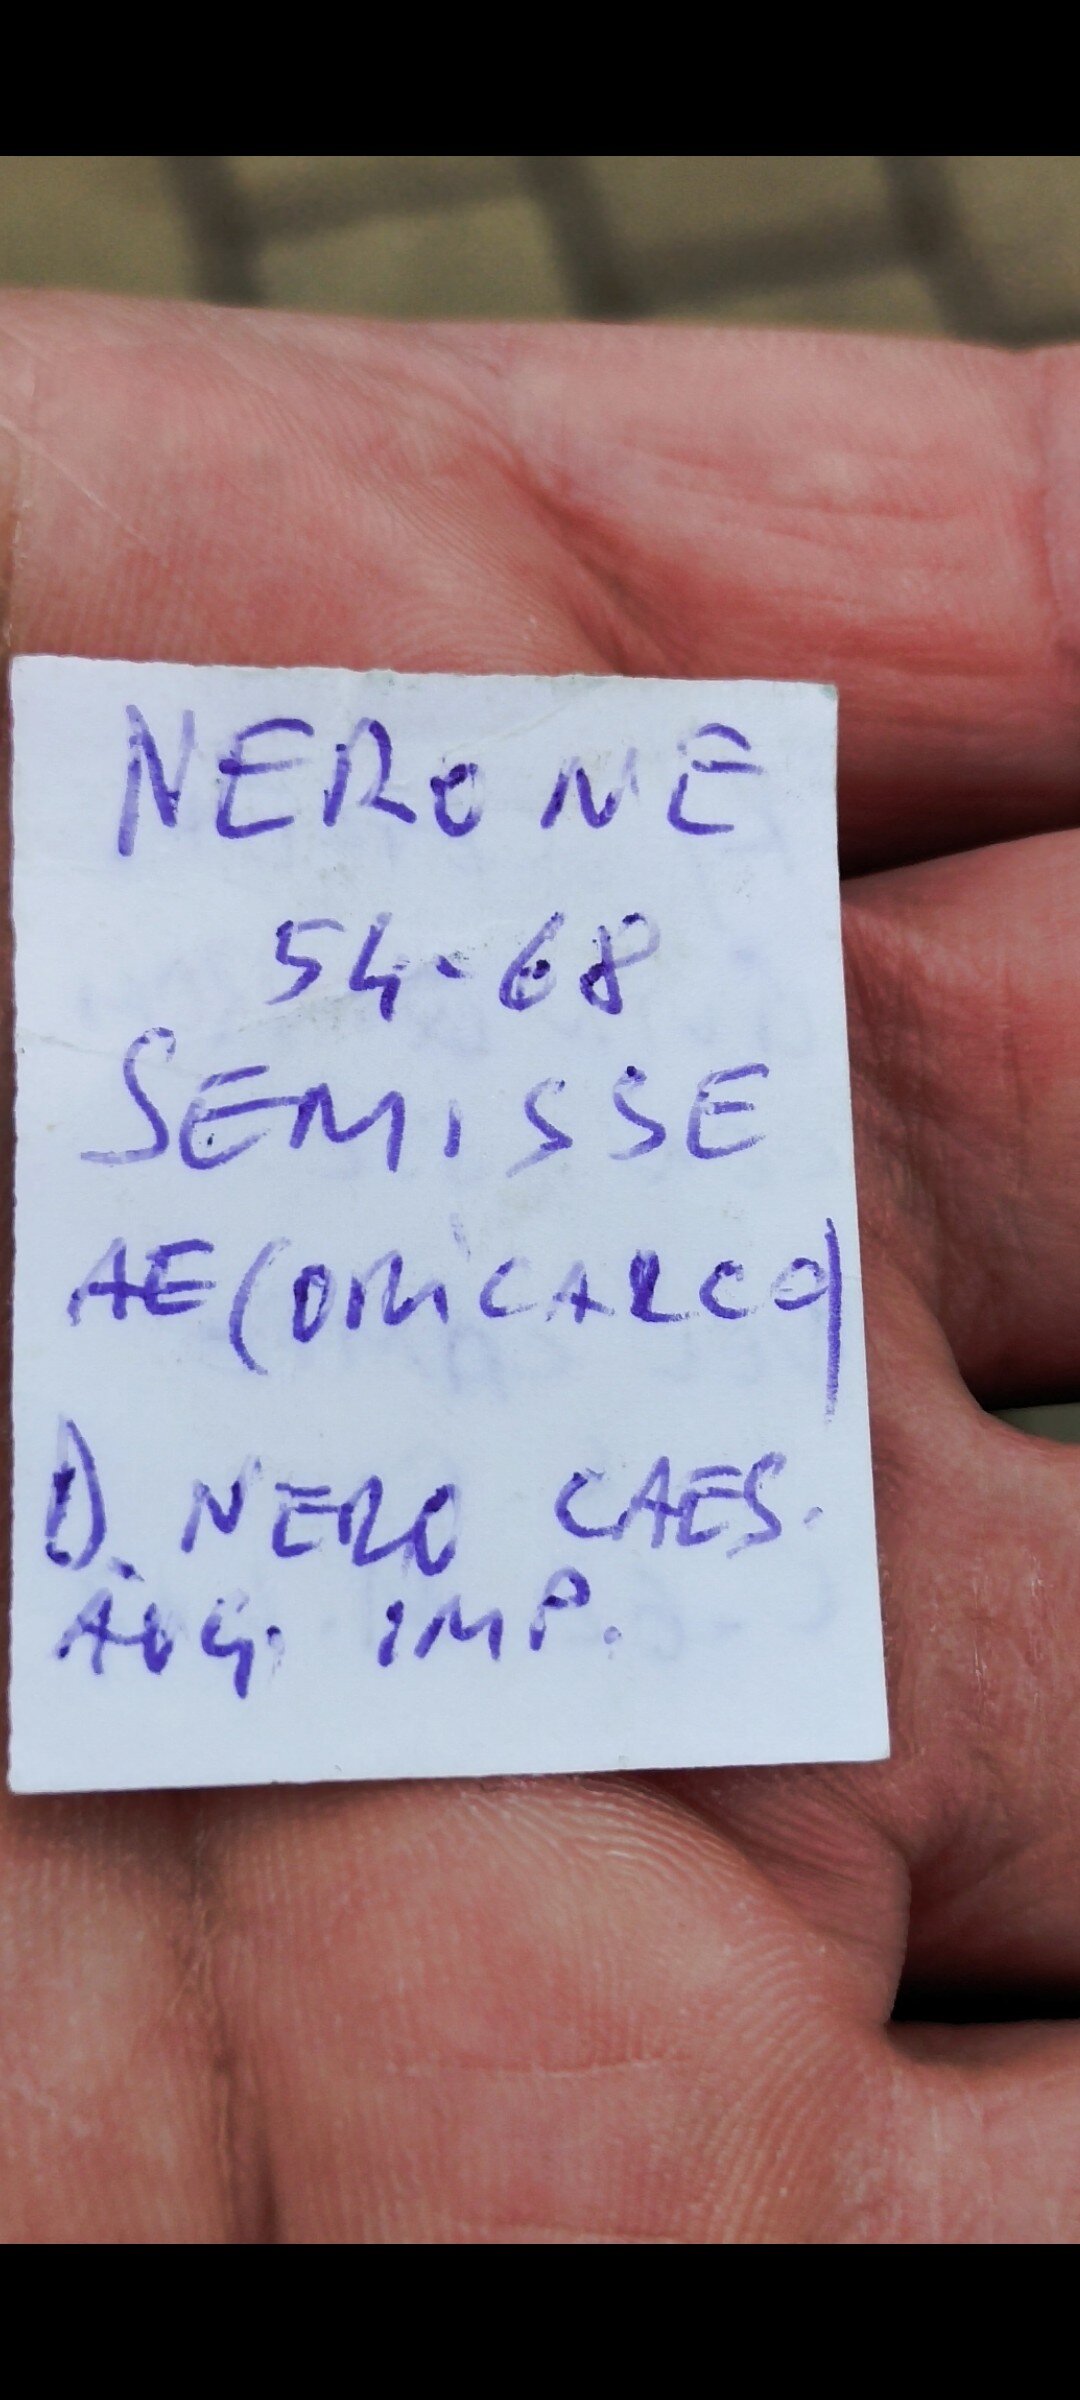 NERONE
54-68
SEMISSE
AE (ORICARCO)
D. NERO CAES.
AUG. IMP.